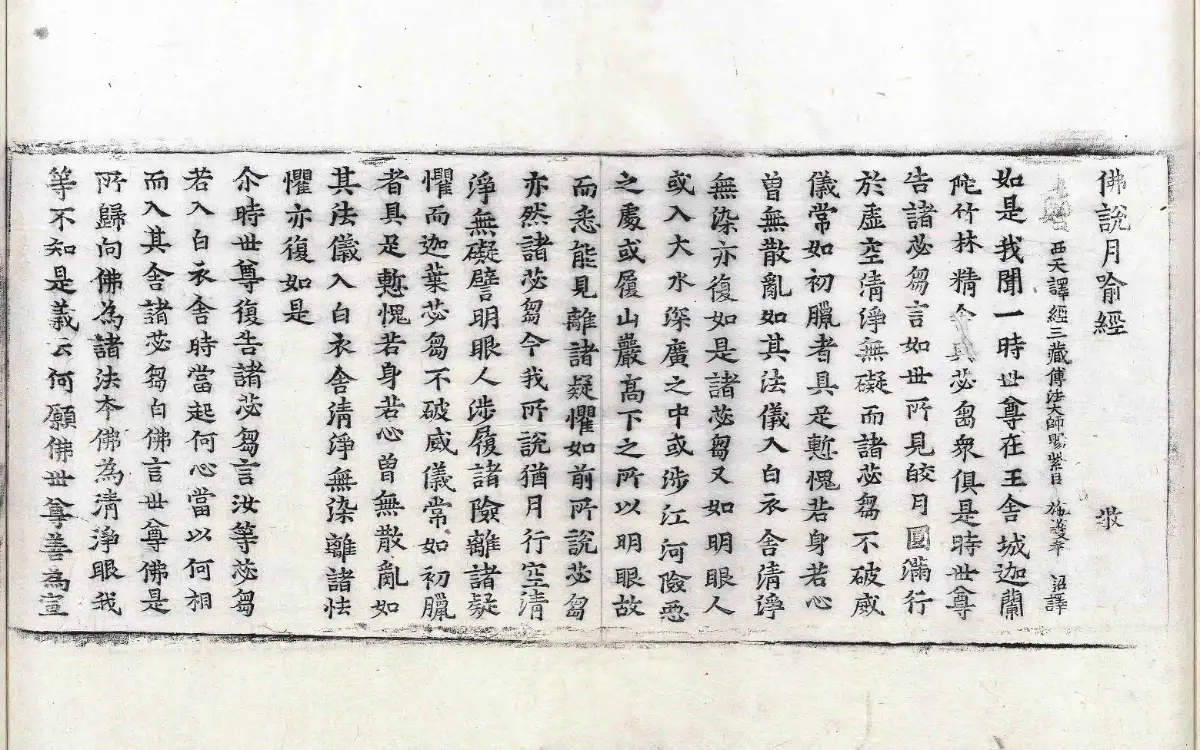 佛說月喻經 㪅
西天譯經三藏傳法大師賜紫臣施護奉 詔譯
如是我聞一時世尊在王舍城迦蘭
陁竹林精舍與苾芻衆俱是時世尊
告諸苾芻言如世所見皎月圓滿行
於虛空清淨無礙而諸苾芻不破威
儀常如初臘者具足慙愧若身若心
曽無散亂如其法儀入白衣舍清淨
無染亦復如是諸苾芻又如明眼人
或入大水深廣之中或涉江河險惡
之處或履山巖高下之所以明眼故
而悉能見離諸疑懼如前所說苾芻
亦然諸苾芻今我所說猶月行空清
淨無礙譬明眼人涉履諸險離諸疑
懼而迦葉苾芻不破威儀常如初臘
者具足慙愧若身若心曽無散亂如
其法儀入白衣舍清淨無染離諸怯
懼亦復如是
尒時世尊復告諸苾芻言汝等苾芻
若入白衣舍時當起何心當以何相
而入其舍諸苾芻白佛言世尊佛是
所歸向佛為諸法本佛為清淨眼我
等不知是義云何願佛世尊善為宣